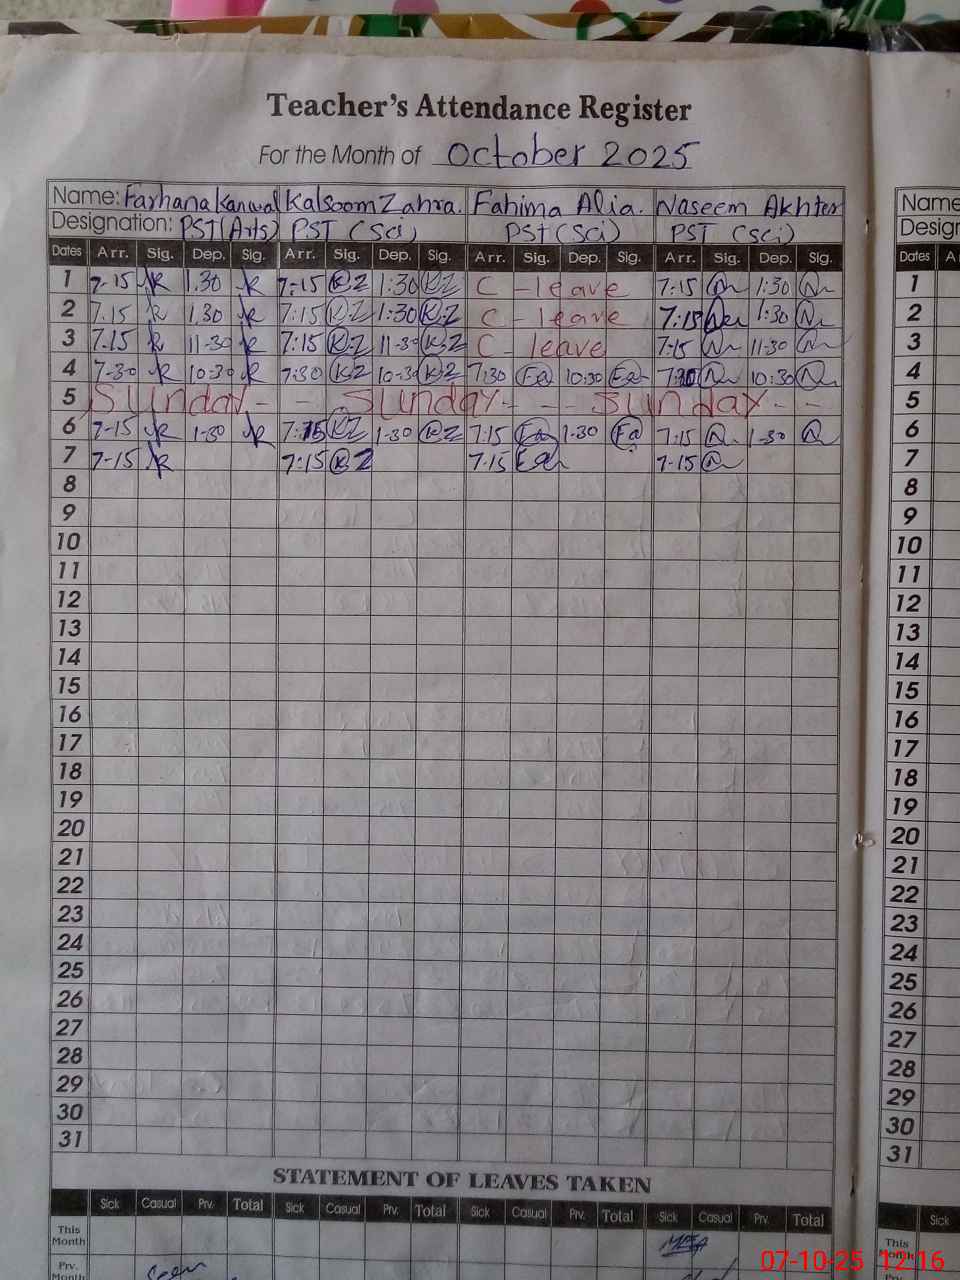 Teacher's Attendance Register
For the Month of October 2025
Name: Farhana Kanwal Kalsoom Zahra. Fahima Alia. Naseem Akhter
Designation: PST (Arts) PST (Sci) PST (Sci) PST (Sci)
Dates Arr. Sig. Dep. Sig. Arr. Sig. Dep. Sig. Arr. Sig. Dep. Sig. Arr. Sig. Dep. Sig.
1 7-15 1.30 7-15 KZ 1:30 KZ C - leave 7:15 1:30
2 7.15 1.30 7:15 KZ 1:30 KZ C - leave 7:15 1:30
3 7.15 11-30 7:15 KZ 11-30 KZ C - leave 7:15 11-30
4 7-30 10-30 7:30 KZ 10-30 KZ 7:30 Fa 10:30 Fa 7:30 10:30
5 Sunday - - Sunday - - - Sunday - -
6 7-15 1-30 7:15 KZ 1-30 KZ 7:15 Fa 1-30 Fa 7:15 1-30
7 7-15 7:15 KZ 7.15 Fa 7-15
8
9
10
11
12
13
14
15
16
17
18
19
20
21
22
23
24
25
26
27
28
29
30
31
STATEMENT OF LEAVES TAKEN
Sick Casual Prv. Total Sick Casual Prv. Total Sick Casual Prv. Total Sick Casual Prv. Total
This Month
Prv. Month
Name
Design
Dates
1
2
3
4
5
6
7
8
9
10
11
12
13
14
15
16
17
18
19
20
21
22
23
24
25
26
27
28
29
30
31
Sick
This Month
07-10-25 12:16